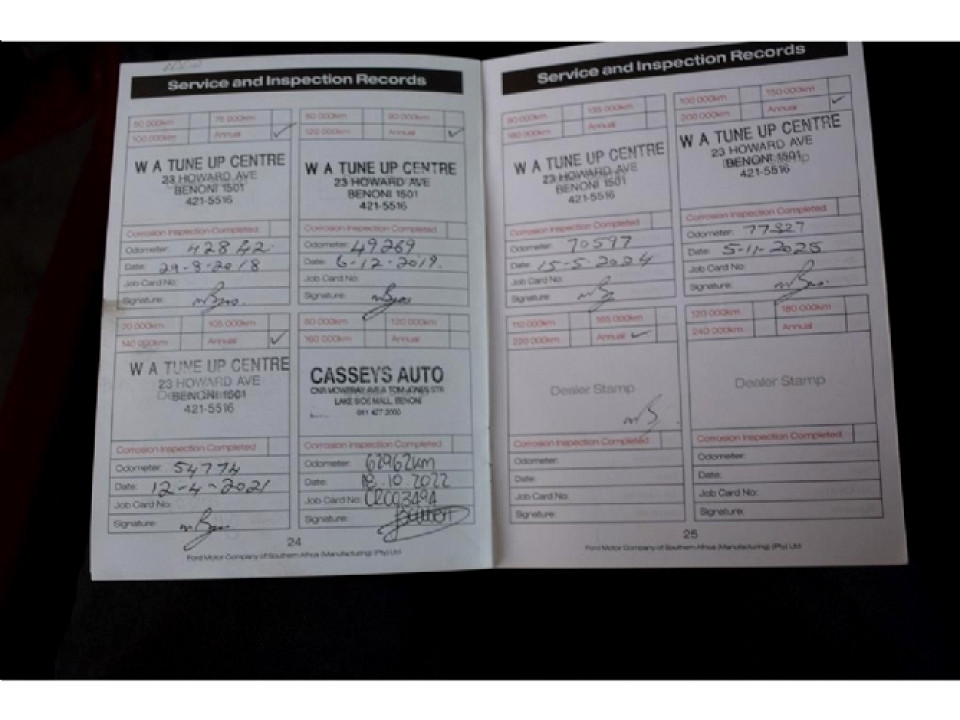 Service and Inspection Records
60 000km 75 000km
100 000km Annual ✓
W A TUNE UP CENTRE
23 HOWARD AVE
BENONI 1501
421-5516
Corrosion Inspection Completed
Odometer: 42842
Date: 29-8-2018
Job Card No:
Signature:
60 000km 90 000km
120 000km Annual ✓
W A TUNE UP CENTRE
23 HOWARD AVE
BENONI 1501
421-5516
Corrosion Inspection Completed
Odometer: 49269
Date: 6-12-2019.
Job Card No:
Signature:
70 000km 105 000km
140 000km Annual ✓
W A TUNE UP CENTRE
23 HOWARD AVE
BENONI 1501
421-5516
Corrosion Inspection Completed
Odometer: 54774
Date: 12-4-2021
Job Card No:
Signature:
80 000km 120 000km
160 000km Annual
CASSEYS AUTO
CNR MOWBRAY AVE & TOM JONES STR
LAKE SIDE MALL, BENONI
Corrosion Inspection Completed
Odometer: 62962km
Date: 18.10.2022
Job Card No:
Signature:
24
Ford Motor Company of Southern Africa (Manufacturing) (Pty) Ltd
Service and Inspection Records
90 000km 135 000km
180 000km Annual
W A TUNE UP CENTRE
23 HOWARD AVE
BENONI 1501
421-5516
Corrosion Inspection Completed
Odometer: 70597
Date: 15-5-2024
Job Card No:
Signature:
100 000km 150 000km
200 000km Annual ✓
W A TUNE UP CENTRE
23 HOWARD AVE
BENONI 1501
421-5516
Corrosion Inspection Completed
Odometer: 77827
Date: 5-11-2025
Job Card No:
Signature:
110 000km 165 000km
220 000km Annual ✓
Dealer Stamp
Corrosion Inspection Completed
Odometer:
Date:
Job Card No:
Signature:
120 000km 180 000km
240 000km Annual
Dealer Stamp
Corrosion Inspection Completed
Odometer:
Date:
Job Card No:
Signature:
25
Ford Motor Company of Southern Africa (Manufacturing) (Pty) Ltd